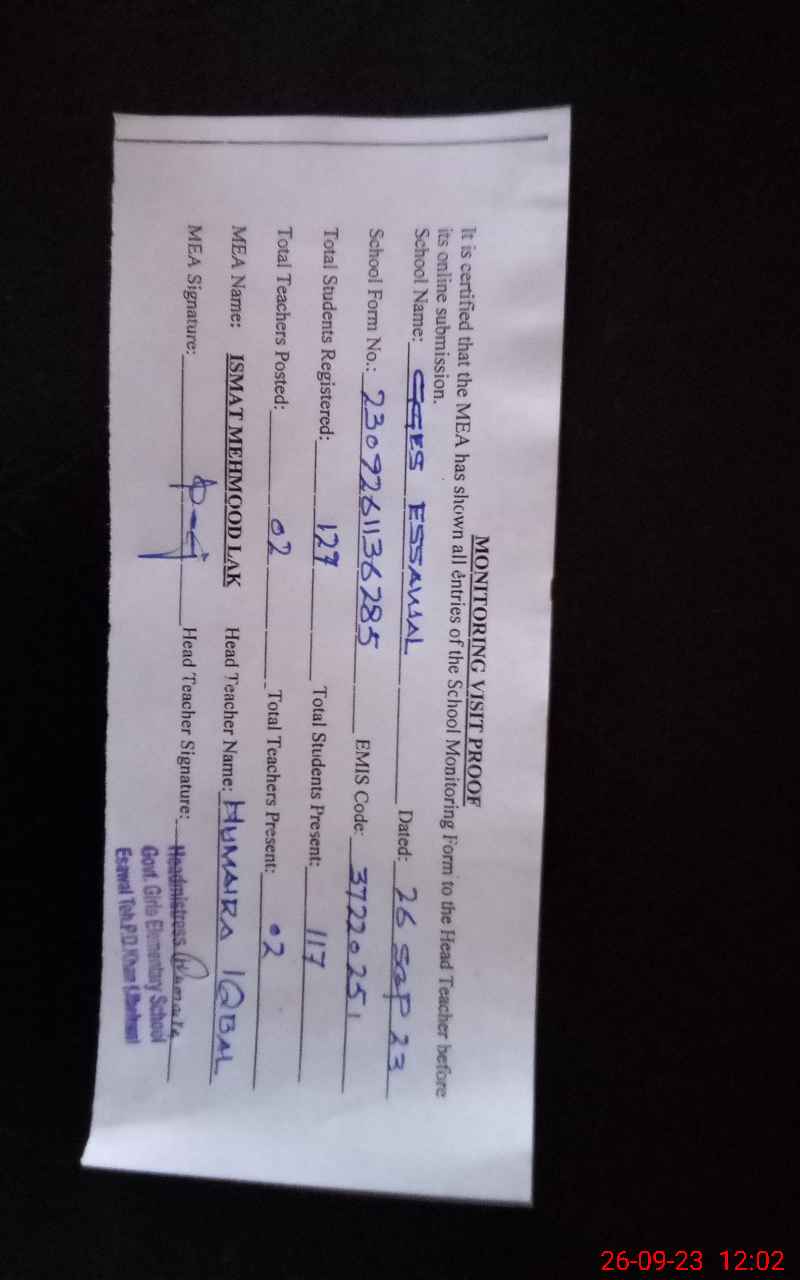 MONITORING VISIT PROOF
It is certified that the MEA has shown all entries of the School Monitoring Form to the Head Teacher before
its online submission.
School Name: GGES ESSAWAL Dated: 26 Sep 23
School Form No.: 2309261136285 EMIS Code: 37220251
Total Students Registered: 127 Total Students Present: 117
Total Teachers Posted: 02 Total Teachers Present: 02
MEA Name: ISMAT MEHMOOD LAK Head Teacher Name: HUMAIRA IQBAL
MEA Signature: Head Teacher Signature: Humaira
Headmistress
Govt. Girls Elementary School
Esawal Teh. P.D. Khan (Jhelum)
26-09-23 12:02